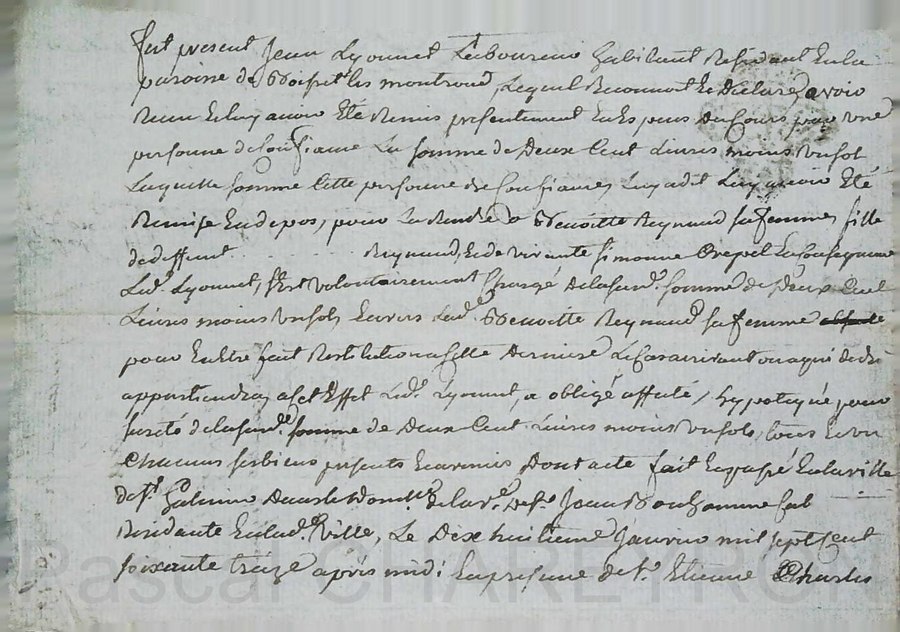 fut present Jean Lyonnet Laboureur habitant Residant en la
paroisse de Boisset les montrond, Lequel Reconnoit Et Declare avoir
Recu Et luy avoir Eté Remis presentement En Especes du Cours par une
personne de Confiance La somme de Deux Cent Livres moins un sol
Laquelle somme Cette personne de Confiance, Luy a dit Luy avoir Eté
Remise En depos, pour La Rendre a Benoitte Reynaud sa femme, fille
de deffunt . . . . . . . Reynaud, Et de vivante Simonne Crepet En Consequence
Led. Lyonnet, s'Est volontairement Chargé de la susd. somme de Deux Cent
Livres moins un sol, Envers Lad. Benoitte Reynaud sa femme
pour En Etre fait Restitution a cette Derniere Le Cas arrivant ou a qui de droit
appartiendra, a Cet Effet Led. Lyonnet, a obligé affecté, hypotequé pour
sureté de la susd. somme de Deux Cent Livres moins un sol, tous Et un
Chacuns ses biens presents Et avenir Dont acte fait Et passé En la ville
de St. Galmier Dans le Dom.le de la ve. de Sr. Jean
Residante En lad. Ville, Le Dixhuitieme Janvier mil sept Cent
soixante treize après midi En presence de Sr. Etienne Charles
Pascal CHARETRON